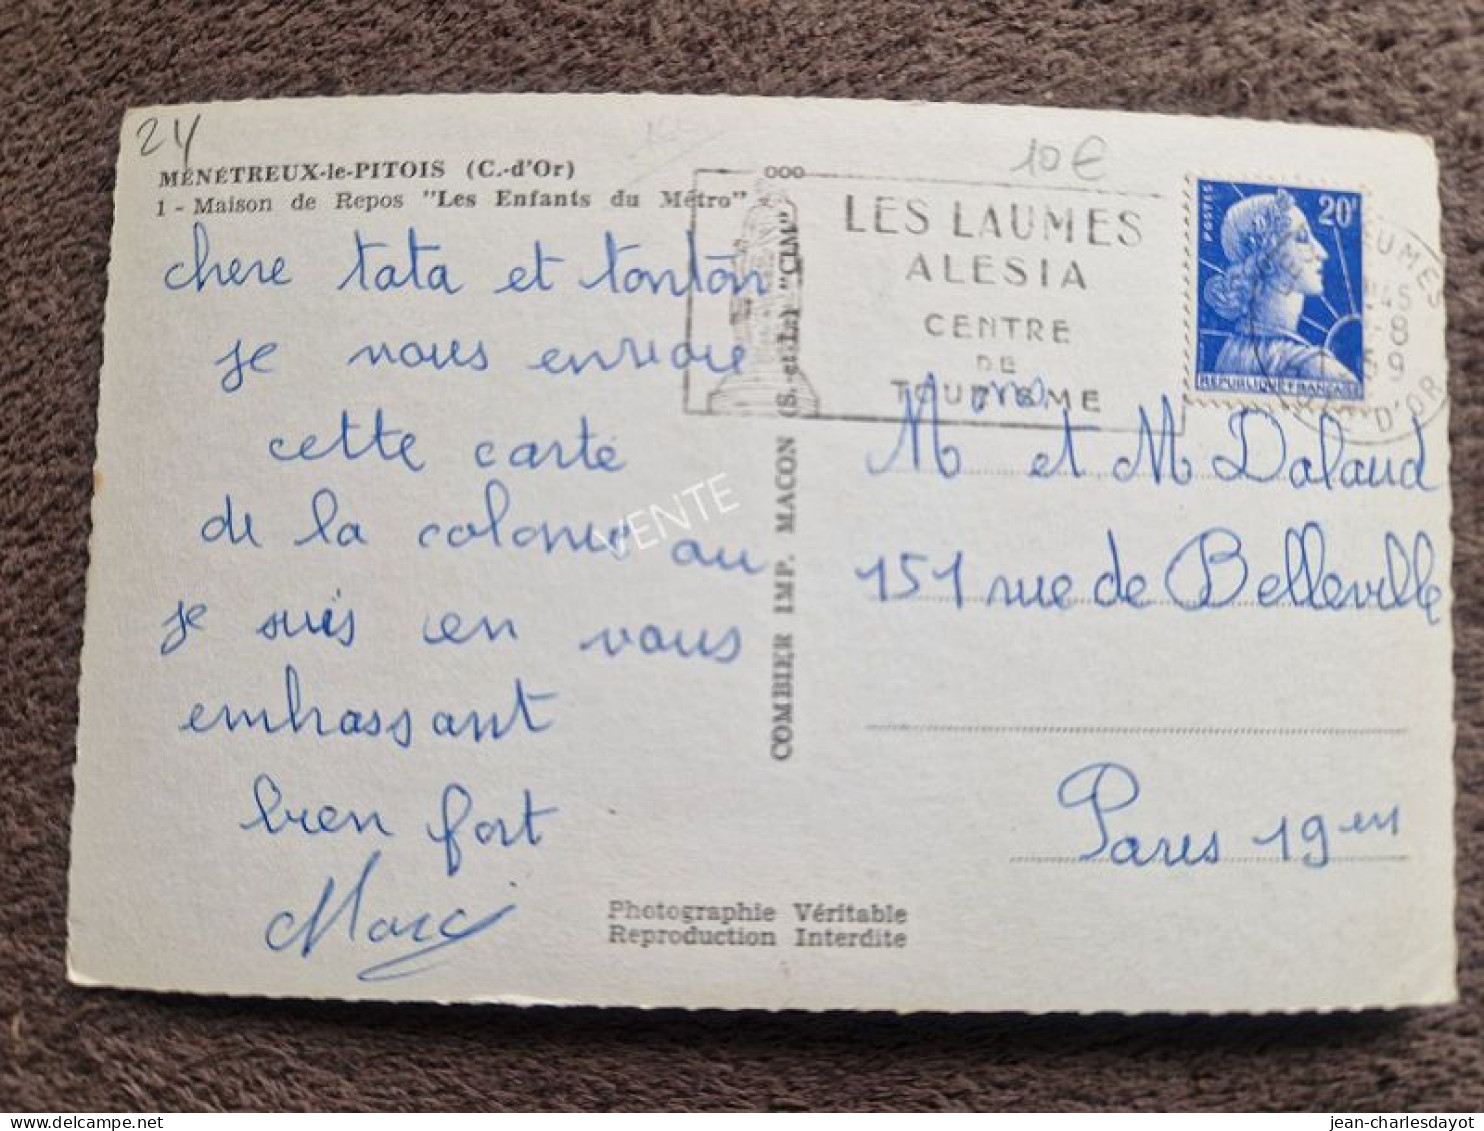 24
MÉNÉTREUX-le-PITOIS (C.-d'Or)
1 - Maison de Repos "Les Enfants du Métro"
chere tata et tonton
je nous envoie
cette carte
de la colonie au
je suis en vous
embrassant
bien fort
Marc
COMBIER IMP. MACON (S.-et-L.) "CIM"
Photographie Véritable
Reproduction Interdite
10€
LES LAUMES
ALESIA
CENTRE
DE
TOURISME
POSTES
20F
REPUBLIQUE FRANÇAISE
M et Mme Dalaud
151 rue de Belleville
Paris 19en
VENTE
jean-charlesdayot